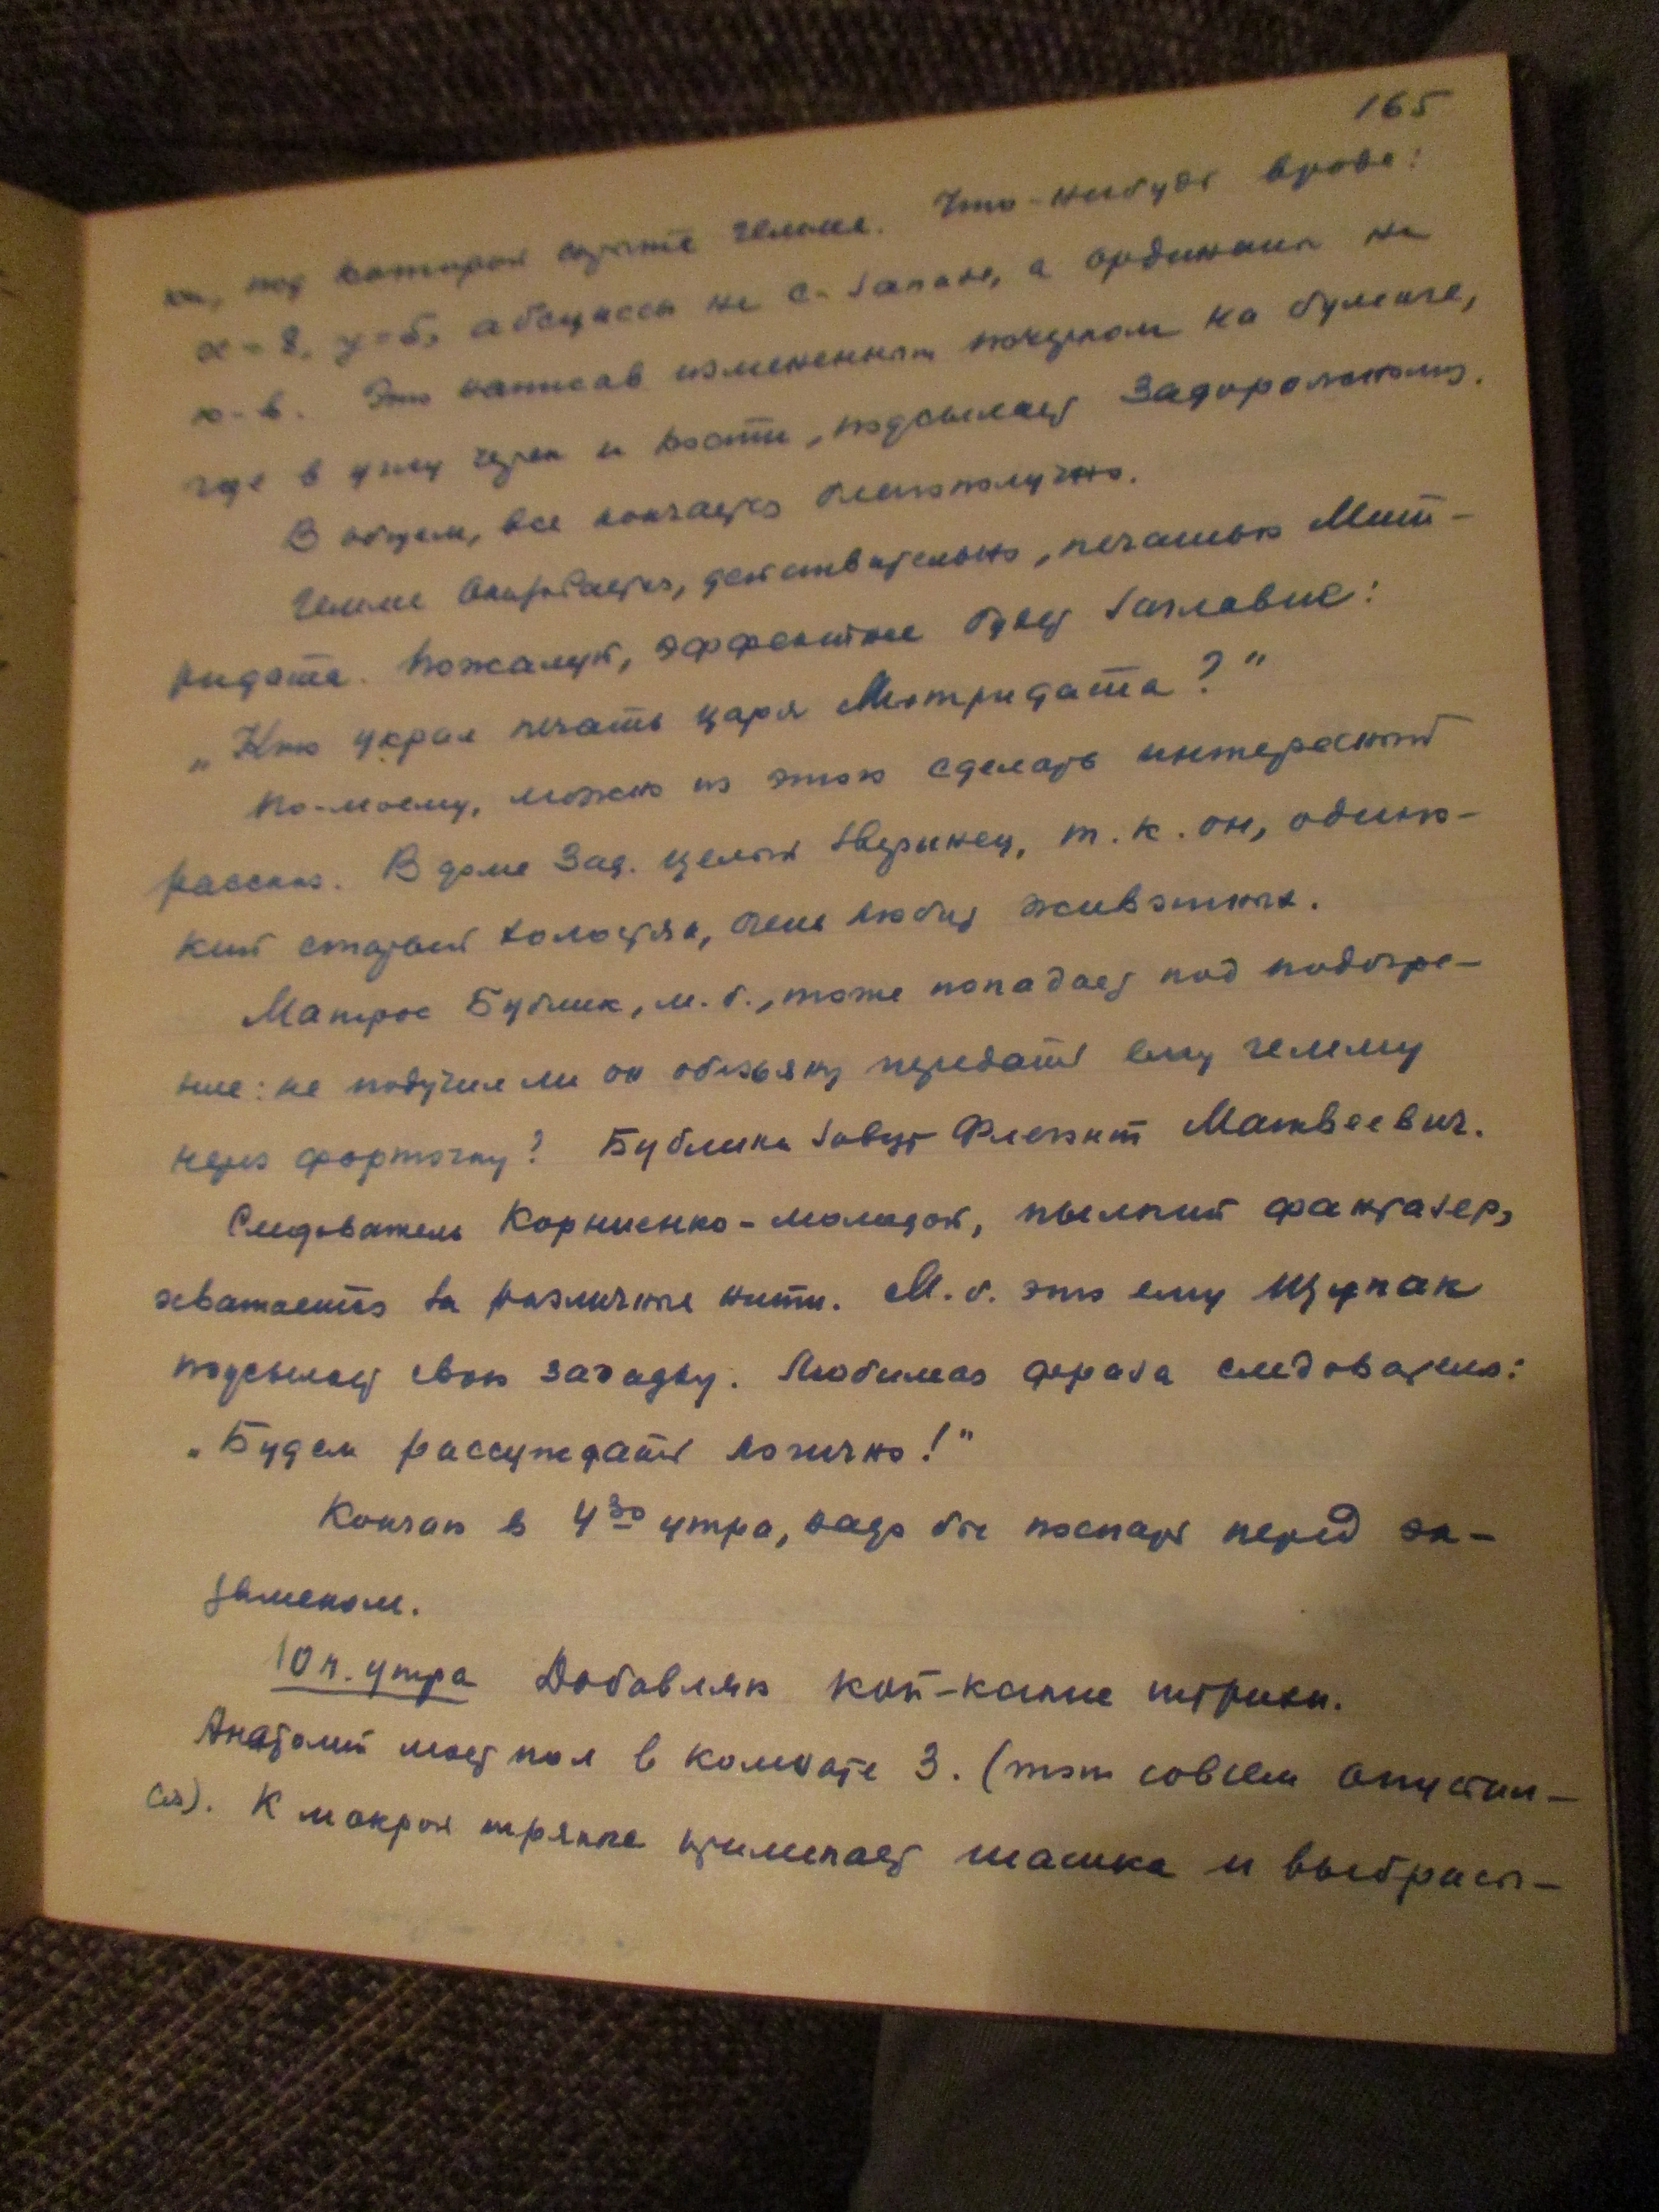 165
ки, под которой спрятана гемма. Что-нибудь вроде:
x = 8, y = 5, абсциссы на с.-запад, а ординаты на
ю-в. Это написав измененным почерком на бумаге,
где в углу череп и кости, подсылает Задорожному.
В общем, все кончается благополучно.
Гемма оказывается, действительно, печатью Мит-
ридата. Пожалуй, эффектнее будет заглавие:
„Кто украл печать царя Митридата?"
По-моему, можно из этого сделать интересный
рассказ. В доме Зад. целый зверинец, т.к. он, одино-
кий старый холостяк, очень любит животных.
Матрос Бублик, м.б., тоже попадает под подозре-
ние: не подучил ли он обезьяну передать ему гемму
через форточку? Бублика зовут Флегонт Матвеевич.
Следователь Корниенко – молодой, пылкий фантазер,
хватается за различные нити. М.б. это ему Щупак
подсылает свою загадку. Любимая фраза следователя:
„Будем рассуждать логично!"
Кончаю в 4 30 утра, надо бы поспать перед эк-
заменом.
10 ч. утра Добавляю кой-какие штрихи.
Анатолий моет пол в комнате З. (тот совсем опустил-
ся). К мокрой тряпке прилипает шашка и выбрасы-